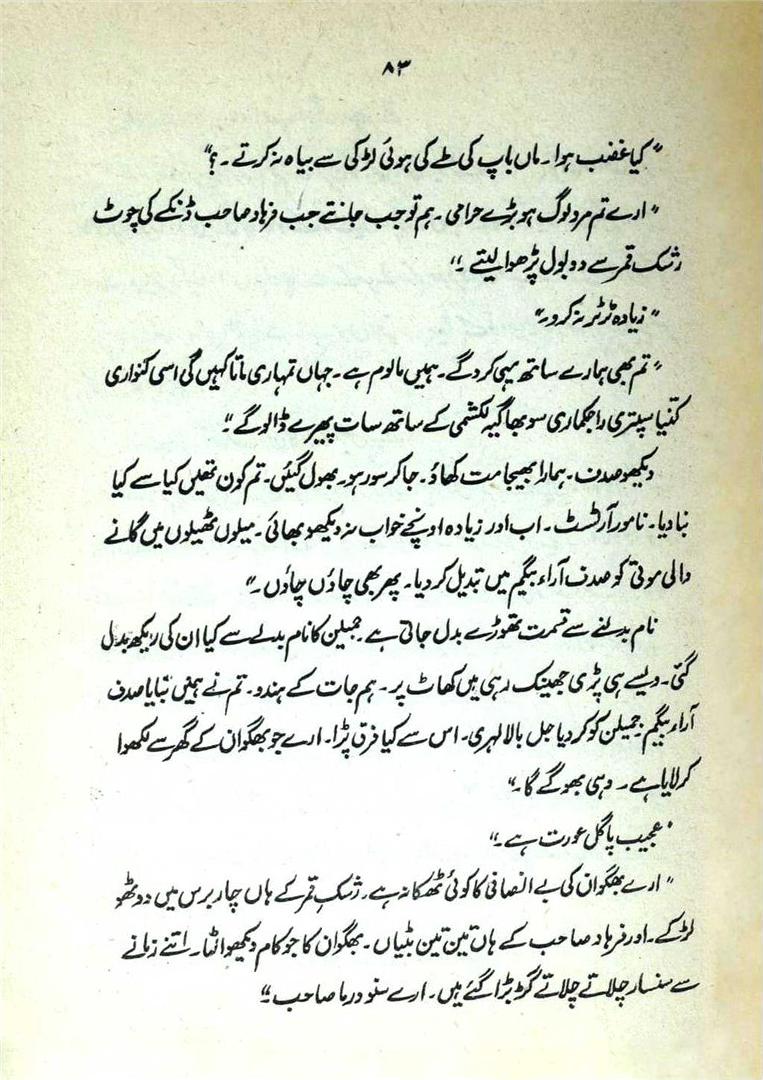 ۸۳
"کیا غضب ہوا۔ ماں باپ کی طے کی ہوئی لڑکی سے بیاہ نہ کرتے۔؟"
"ارے تم مرد لوگ ہو بڑے حرامی۔ ہم تو جب جانتے جب فرہاد صاحب ڈنکے کی چوٹ
رشک قمر سے دو بول پڑھوا لیتے۔"
"زیادہ ٹرٹر نہ کرو۔"
"تم بھی ہمارے ساتھ یہی کرو گے۔ ہمیں مالوم ہے۔ جہاں تمہاری ماتا کہیں گی اسی کنواری
کنّیا سپتری راجکماری سوبھاگیہ لکشمی کے ساتھ سات پھیرے ڈالو گے۔"
دیکھو صدف۔ ہمارا بھیجا مت کھاؤ۔ جا کر سو رہو۔ بھول گئیں۔ تم کون تھیں کیا سے کیا
بنا دیا۔ نامور آرٹسٹ۔ اب اور زیادہ اونچے خواب نہ دیکھو بھائی۔ میلوں ٹھیلوں میں گانے
والی موتی کو صدف آراء بیگم میں تبدیل کر دیا۔ پھر بھی چاؤں چاؤں۔"
نام بدلنے سے قسمت تھوڑے بدل جاتی ہے جمیلن کا نام بدلنے سے کیا ان کی ریکھ بدل
گئی۔ ویسے ہی پڑی جھینک رہی ہیں کھاٹ پر۔ ہم جات کے ہندو۔ تم نے ہمیں بنایا صدف
آراء بیگم جمیلن کو کر دیا جل بالا لہری۔ اس سے کیا فرق پڑا۔ ارے جو بھگوان کے گھر سے لکھوا
کر لایا ہے۔ وہی بھوگے گا۔"
'عجیب پاگل عورت ہے۔"
"ارے بھگوان کی بے انصافی کا کوئی ٹھکانہ ہے۔ رشکِ قمر کے ہاں چار برس میں دو ٹھو
لڑکے۔ اور فرہاد صاحب کے ہاں تین تین بٹیاں۔ بھگوان کا جو کام دیکھو الٹا۔ اتنے زمانے
سے سنسار چلاتے چلاتے گڑبڑا گئے ہیں۔ ارے سنو ورما صاحب۔"